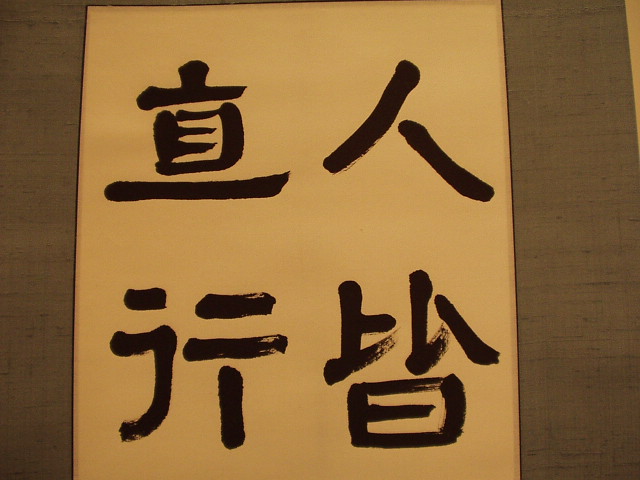 人皆
直行